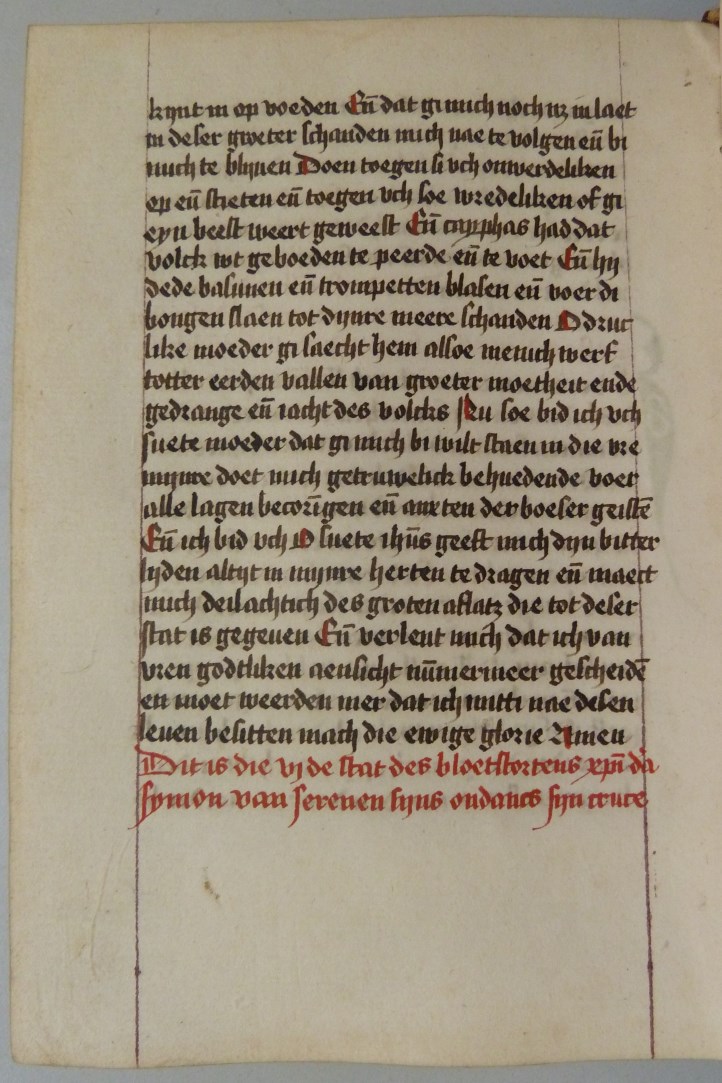 kynt in op voeden Eñ dat gi mich noch nz in laet
in deser groeter schanden mich nae te volgen eñ bi
mich te bliuen Doen toegen si vch onwerdeliken
ep eñ stieten eñ toegen vch soe wredeliken of gi
eyn beest weert geweest Eñ cayphas had dat
volck wt geboeden te peerde eñ te voet Eñ hij
dede basunen eñ trompetten blasen eñ voer di
bongen slaen tot dijnre meere schanden O druc
like moeder gi saecht hem alsoe menich werf
totter eerden vallen van groeter moetheit ende
gedrange eñ iacht des volcks Nu soe bid ich vch
suete moeder dat gi mich bi wilt staen in die vre
mijnre doet mich getruwelick behuedende voer
alle lagen becorīgen eñ anxten der boeser geistē
Eñ ich bid vch O suete ihūs geeft mich dijn bitter
lijden altijt in mijnre herten te dragen eñ maect
mich deilachtich des groten aflatz die tot deser
stat is gegeuen Eñ verlent mich dat ich van
vren godtliken aensicht nūmermeer gescheidē
en moet weerden mer dat ich mitti nae desen
leuen besitten mach die ewige glorie Amen
Dit is die vj de stat des bloetstortens xpī da
symon van serenen sijns ondancs sijn cruce